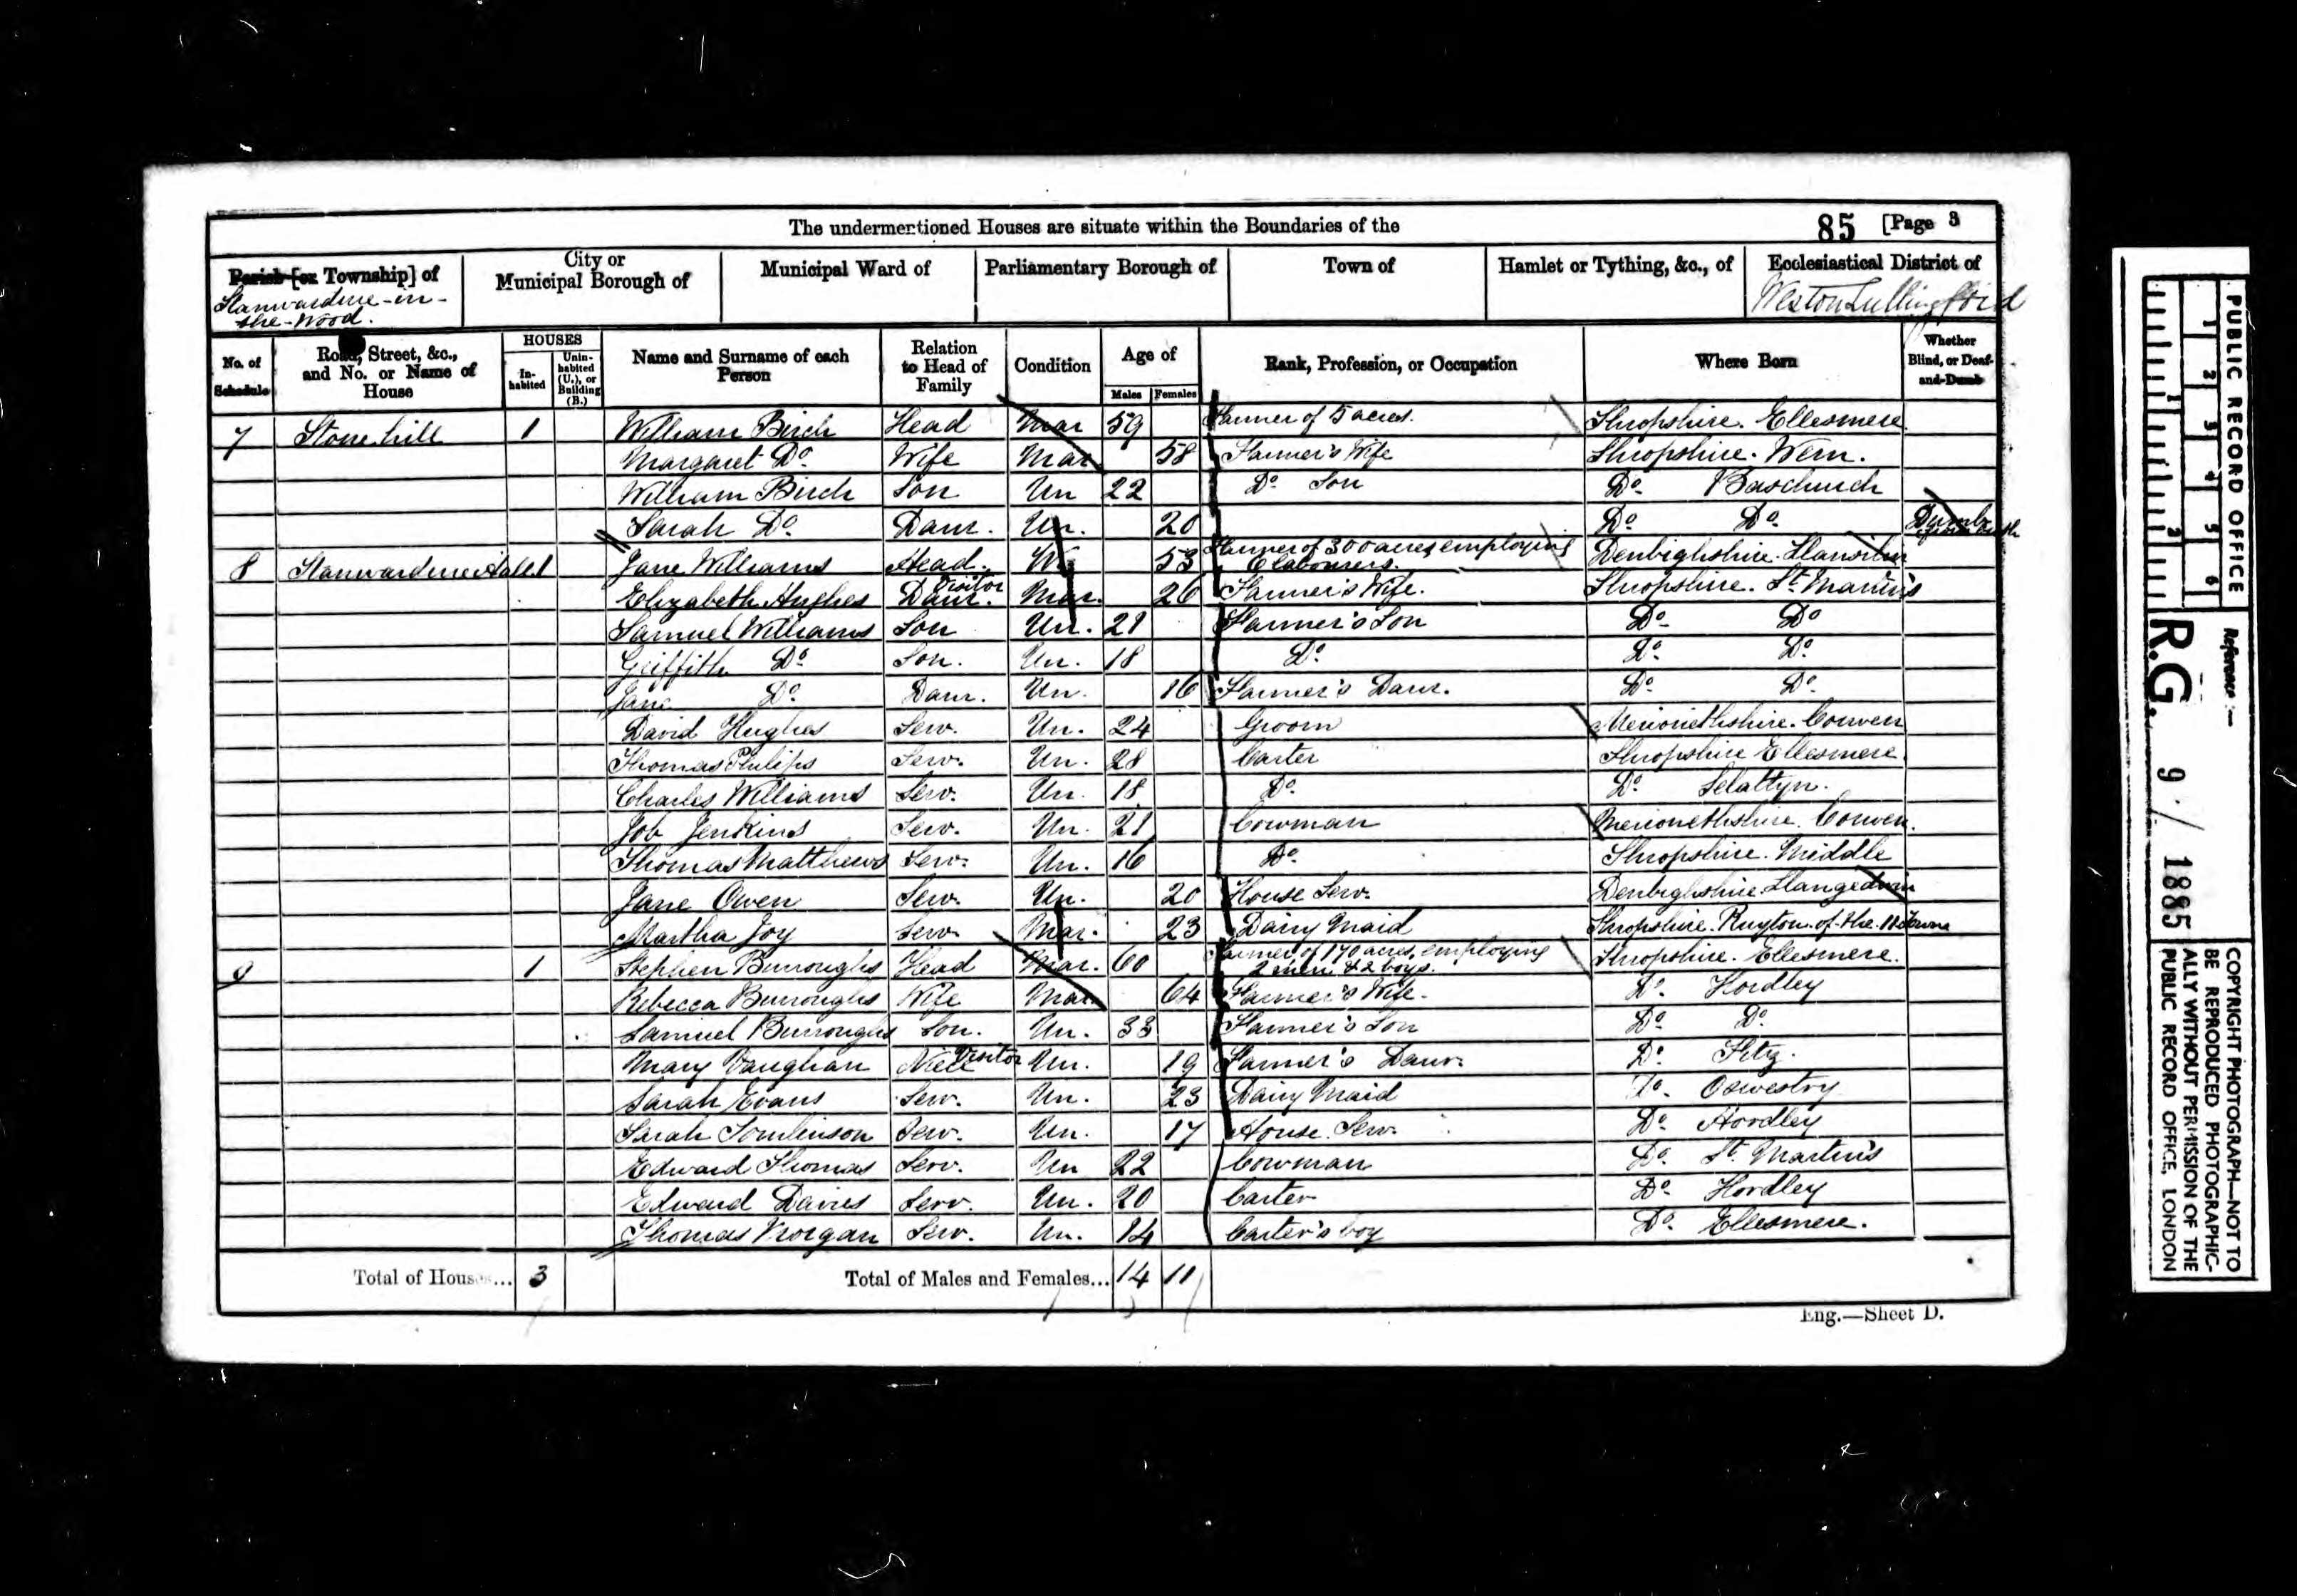 The undermentioned Houses are situate within the Boundaries of the
85 [Page 3
Parish [or Township] of
Stanwardine-in-the-Wood.
City or Municipal Borough of
Municipal Ward of
Parliamentary Borough of
Town of
Hamlet or Tything, &c., of
Ecclesiastical District of
Weston Lullingford
No. of Schedule
Road, Street, &c., and No. or Name of House
HOUSES
In-habited
Unin-habited (U.), or Building (B.)
Name and Surname of each Person
Relation to Head of Family
Condition
Age of
Males Females
Rank, Profession, or Occupation
Where Born
Whether Blind, or Deaf-and-Dumb
7 Stone hill 1 William Birch Head Mar 59 Farmer of 5 acres. Shropshire. Ellesmere
Margaret Do. Wife Mar 58 Farmer's Wife Shropshire. Wem.
William Birch Son Un 22 Do. Son Do. Baschurch
Sarah Do. Daur. Un. 20 Do. Do. Dumb
8 Stanwardine Hall 1 Jane Williams Head. W 53 Farmer of 300 acres employing 6 labourers. Denbighshire. Llansilin
Elizabeth Hughes Daur. Visitor Mar. 26 Farmer's Wife. Shropshire. St. Martin's
Samuel Williams Son Un. 21 Farmer's Son Do. Do
Griffith Do. Son. Un. 18 Do. Do. Do.
Jane Do. Daur. Un. 16 Farmer's Daur. Do. Do.
David Hughes Serv. Un. 24 Groom Merionethshire. Corwen
Thomas Philips Serv. Un. 28 Carter Shropshire Ellesmere.
Charles Williams Serv. Un. 18 Do. Do. Selattyn.
Job Jenkins Serv. Un. 21 Cowman Merionethshire. Corwen.
Thomas Matthews Serv. Un. 16 Do. Shropshire. Middle
Jane Owen Serv. Un. 20 House Serv. Denbighshire. Llangedwin
Martha Joy Serv. Mar. 23 Dairy Maid Shropshire. Ruyton-of-the-11 Towns
9 1 Stephen Burroughs Head Mar. 60 Farmer of 170 acres, employing 2 men & 2 boys. Shropshire. Ellesmere.
Rebecca Burroughs Wife Mar. 64 Farmer's Wife. Do. Hordley
Samuel Burroughs Son. Un. 33 Farmer's Son Do. Do.
Mary Vaughan Niece Visitor Un. 19 Farmer's Daur. Do. Fitz.
Sarah Evans Serv. Un. 23 Dairy Maid Do. Oswestry
Sarah Tomlinson Serv. Un. 17 House Serv. Do. Hordley
Edward Thomas Serv. Un 22 Cowman Do. St. Martin's
Edward Davies Serv. Un. 20 Carter Do. Hordley
Thomas Morgan Serv. Un. 14 Carter's boy Do. Ellesmere.
Total of Houses... 3
Total of Males and Females... 14 11
Eng.—Sheet D.
PUBLIC RECORD OFFICE
1 2 3 4 5 6
1 2
Reference :—
R.G. 9 / 1885
COPYRIGHT PHOTOGRAPH—NOT TO
BE REPRODUCED PHOTOGRAPHIC-
ALLY WITHOUT PERMISSION OF THE
PUBLIC RECORD OFFICE, LONDON